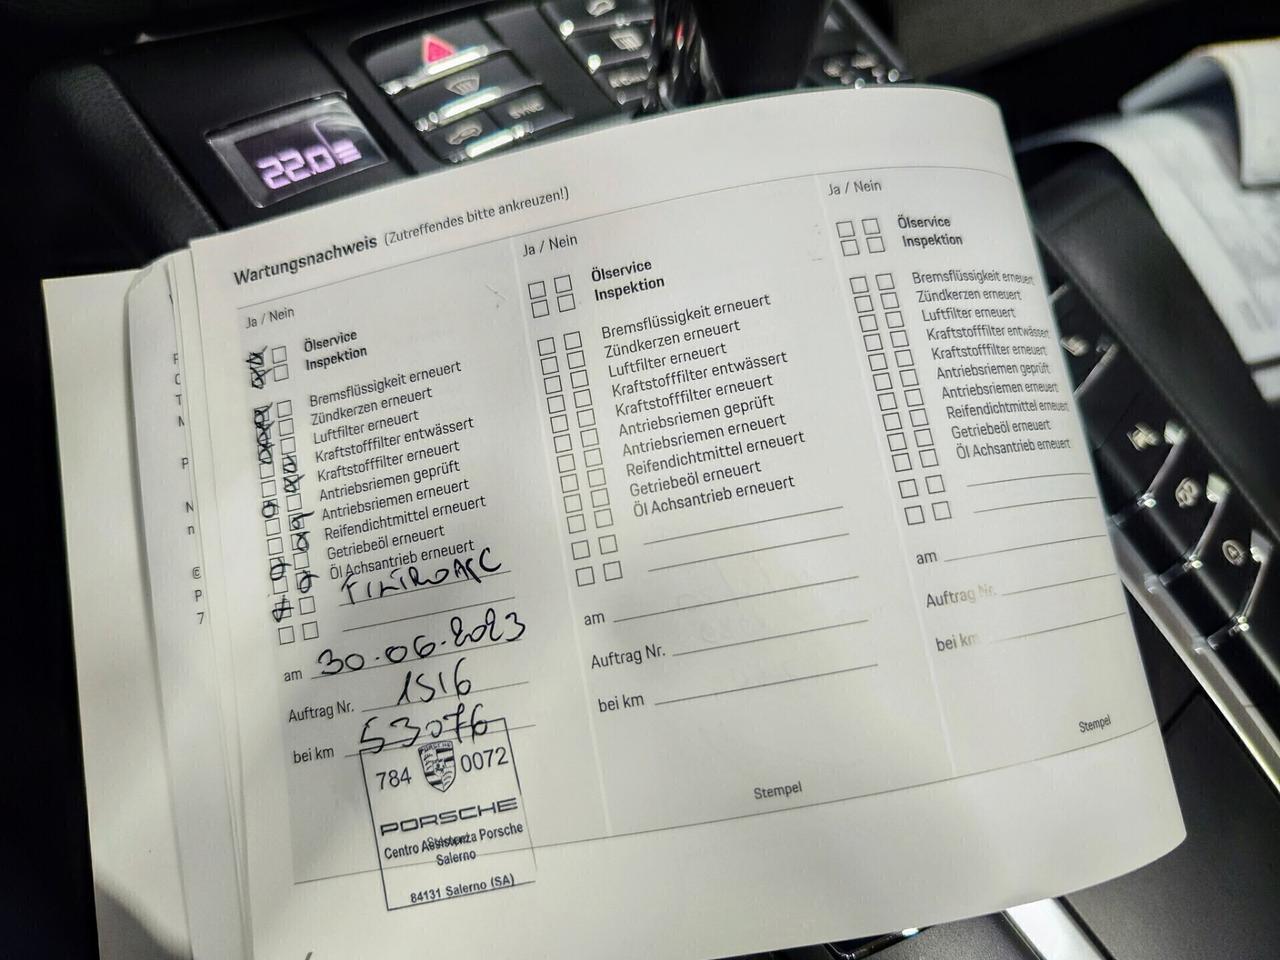 22.0
SYNC
Wartungsnachweis (Zutreffendes bitte ankreuzen!)
Ja / Nein
Ölservice
Inspektion
Bremsflüssigkeit erneuert
Zündkerzen erneuert
Luftfilter erneuert
Kraftstofffilter entwässert
Kraftstofffilter erneuert
Antriebsriemen geprüft
Antriebsriemen erneuert
Reifendichtmittel erneuert
Getriebeöl erneuert
Öl Achsantrieb erneuert
am 30.06.2023
Auftrag Nr. 1516
bei km 53076
784 0072
PORSCHE
Centro Assistenza Porsche
Salerno
84131 Salerno (SA)
Ja / Nein
Ölservice
Inspektion
Bremsflüssigkeit erneuert
Zündkerzen erneuert
Luftfilter erneuert
Kraftstofffilter entwässert
Kraftstofffilter erneuert
Antriebsriemen geprüft
Antriebsriemen erneuert
Reifendichtmittel erneuert
Getriebeöl erneuert
Öl Achsantrieb erneuert
am
Auftrag Nr.
bei km
Stempel
Ja / Nein
Ölservice
Inspektion
Bremsflüssigkeit erneuert
Zündkerzen erneuert
Luftfilter erneuert
Kraftstofffilter entwässert
Kraftstofffilter erneuert
Antriebsriemen geprüft
Antriebsriemen erneuert
Reifendichtmittel erneuert
Getriebeöl erneuert
Öl Achsantrieb erneuert
am
Auftrag Nr.
bei km
Stempel